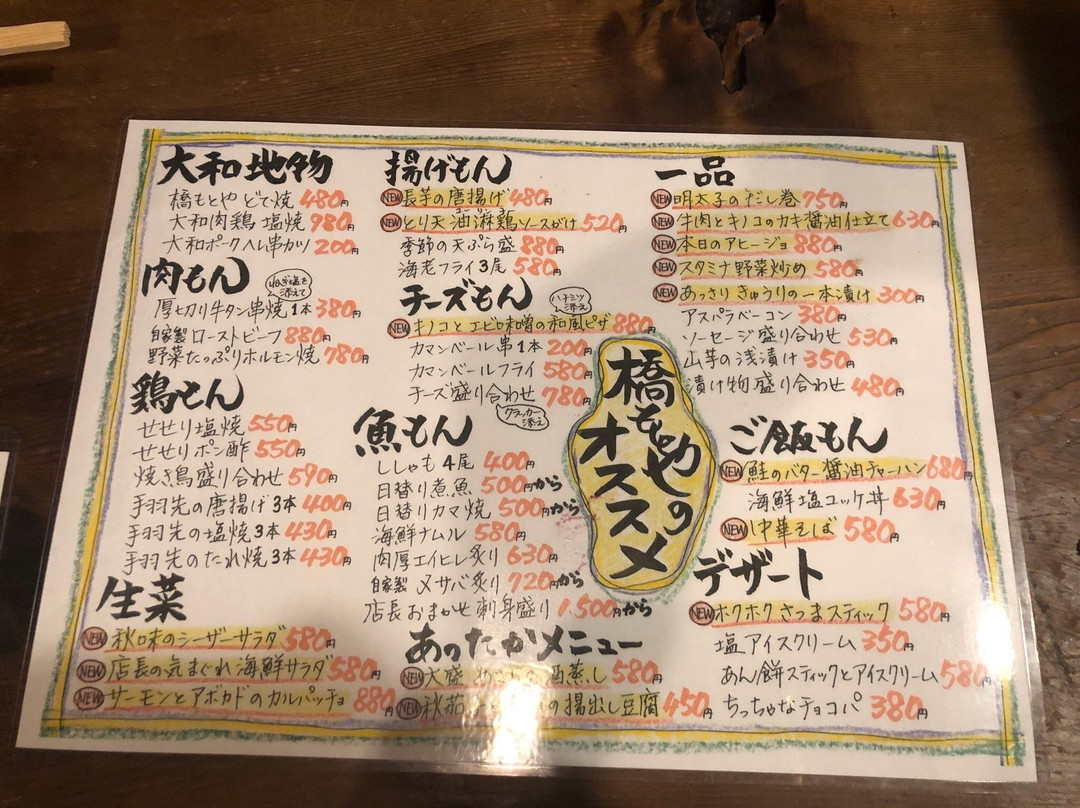 大和地物
橋もとや どて焼 480円
大和肉鶏 塩焼 980円
大和ポークヘレ串カツ 200円
肉もん
ねぎ塩を
添えて
厚切り牛タン串焼 1本 380円
自家製 ローストビーフ 880円
野菜たっぷりホルモン焼 780円
鶏もん
せせり塩焼 550円
せせりポン酢 550円
焼き鳥盛り合わせ 590円
手羽先の唐揚げ 3本 400円
手羽先の塩焼 3本 430円
手羽先のたれ焼 3本 430円
生菜
NEW 秋味のシーザーサラダ 580円
NEW 店長の気まぐれ海鮮サラダ 580円
NEW サーモンとアボカドのカルパッチョ 880円
揚げもん
NEW 長芋の唐揚げ 480円
NEW とり天油淋鶏ソースがけ 520円
季節の天ぷら盛 880円
海老フライ 3尾 580円
チーズもん
ハチミツ
添え
NEW キノコとエビ味噌の和風ピザ 880円
カマンベール串 1本 200円
カマンベールフライ 580円
チーズ盛り合わせ 780円
クラッカー
添え
魚もん
ししゃも 4尾 400円
日替り煮魚 500円から
日替りカマ焼 500円から
海鮮ナムル 580円
肉厚エイヒレ炙り 630円
自家製 〆サバ炙り 720円から
店長おまかせ刺身盛り 1.500円から
あったかメニュー
NEW 大盛 酒蒸し 580円
NEW 秋茄子 の揚出し豆腐 450円
橋もとやの
オススメ
一品
NEW 明太子のだし巻 750円
NEW 牛肉とキノコのカキ醤油仕立て 630円
NEW 本日のアヒージョ 880円
NEW スタミナ野菜炒め 580円
NEW あっさりきゅうりの一本漬け 300円
アスパラベーコン 380円
ソーセージ盛り合わせ 530円
山芋の浅漬け 350円
漬け物盛り合わせ 480円
ご飯もん
NEW 鮭のバター醤油チャーハン 680円
海鮮塩ユッケ丼 630円
NEW 中華そば 580円
デザート
NEW ホクホクさつまスティック 580円
塩アイスクリーム 350円
あん餅スティックとアイスクリーム 580円
ちっちゃなチョコパ 380円